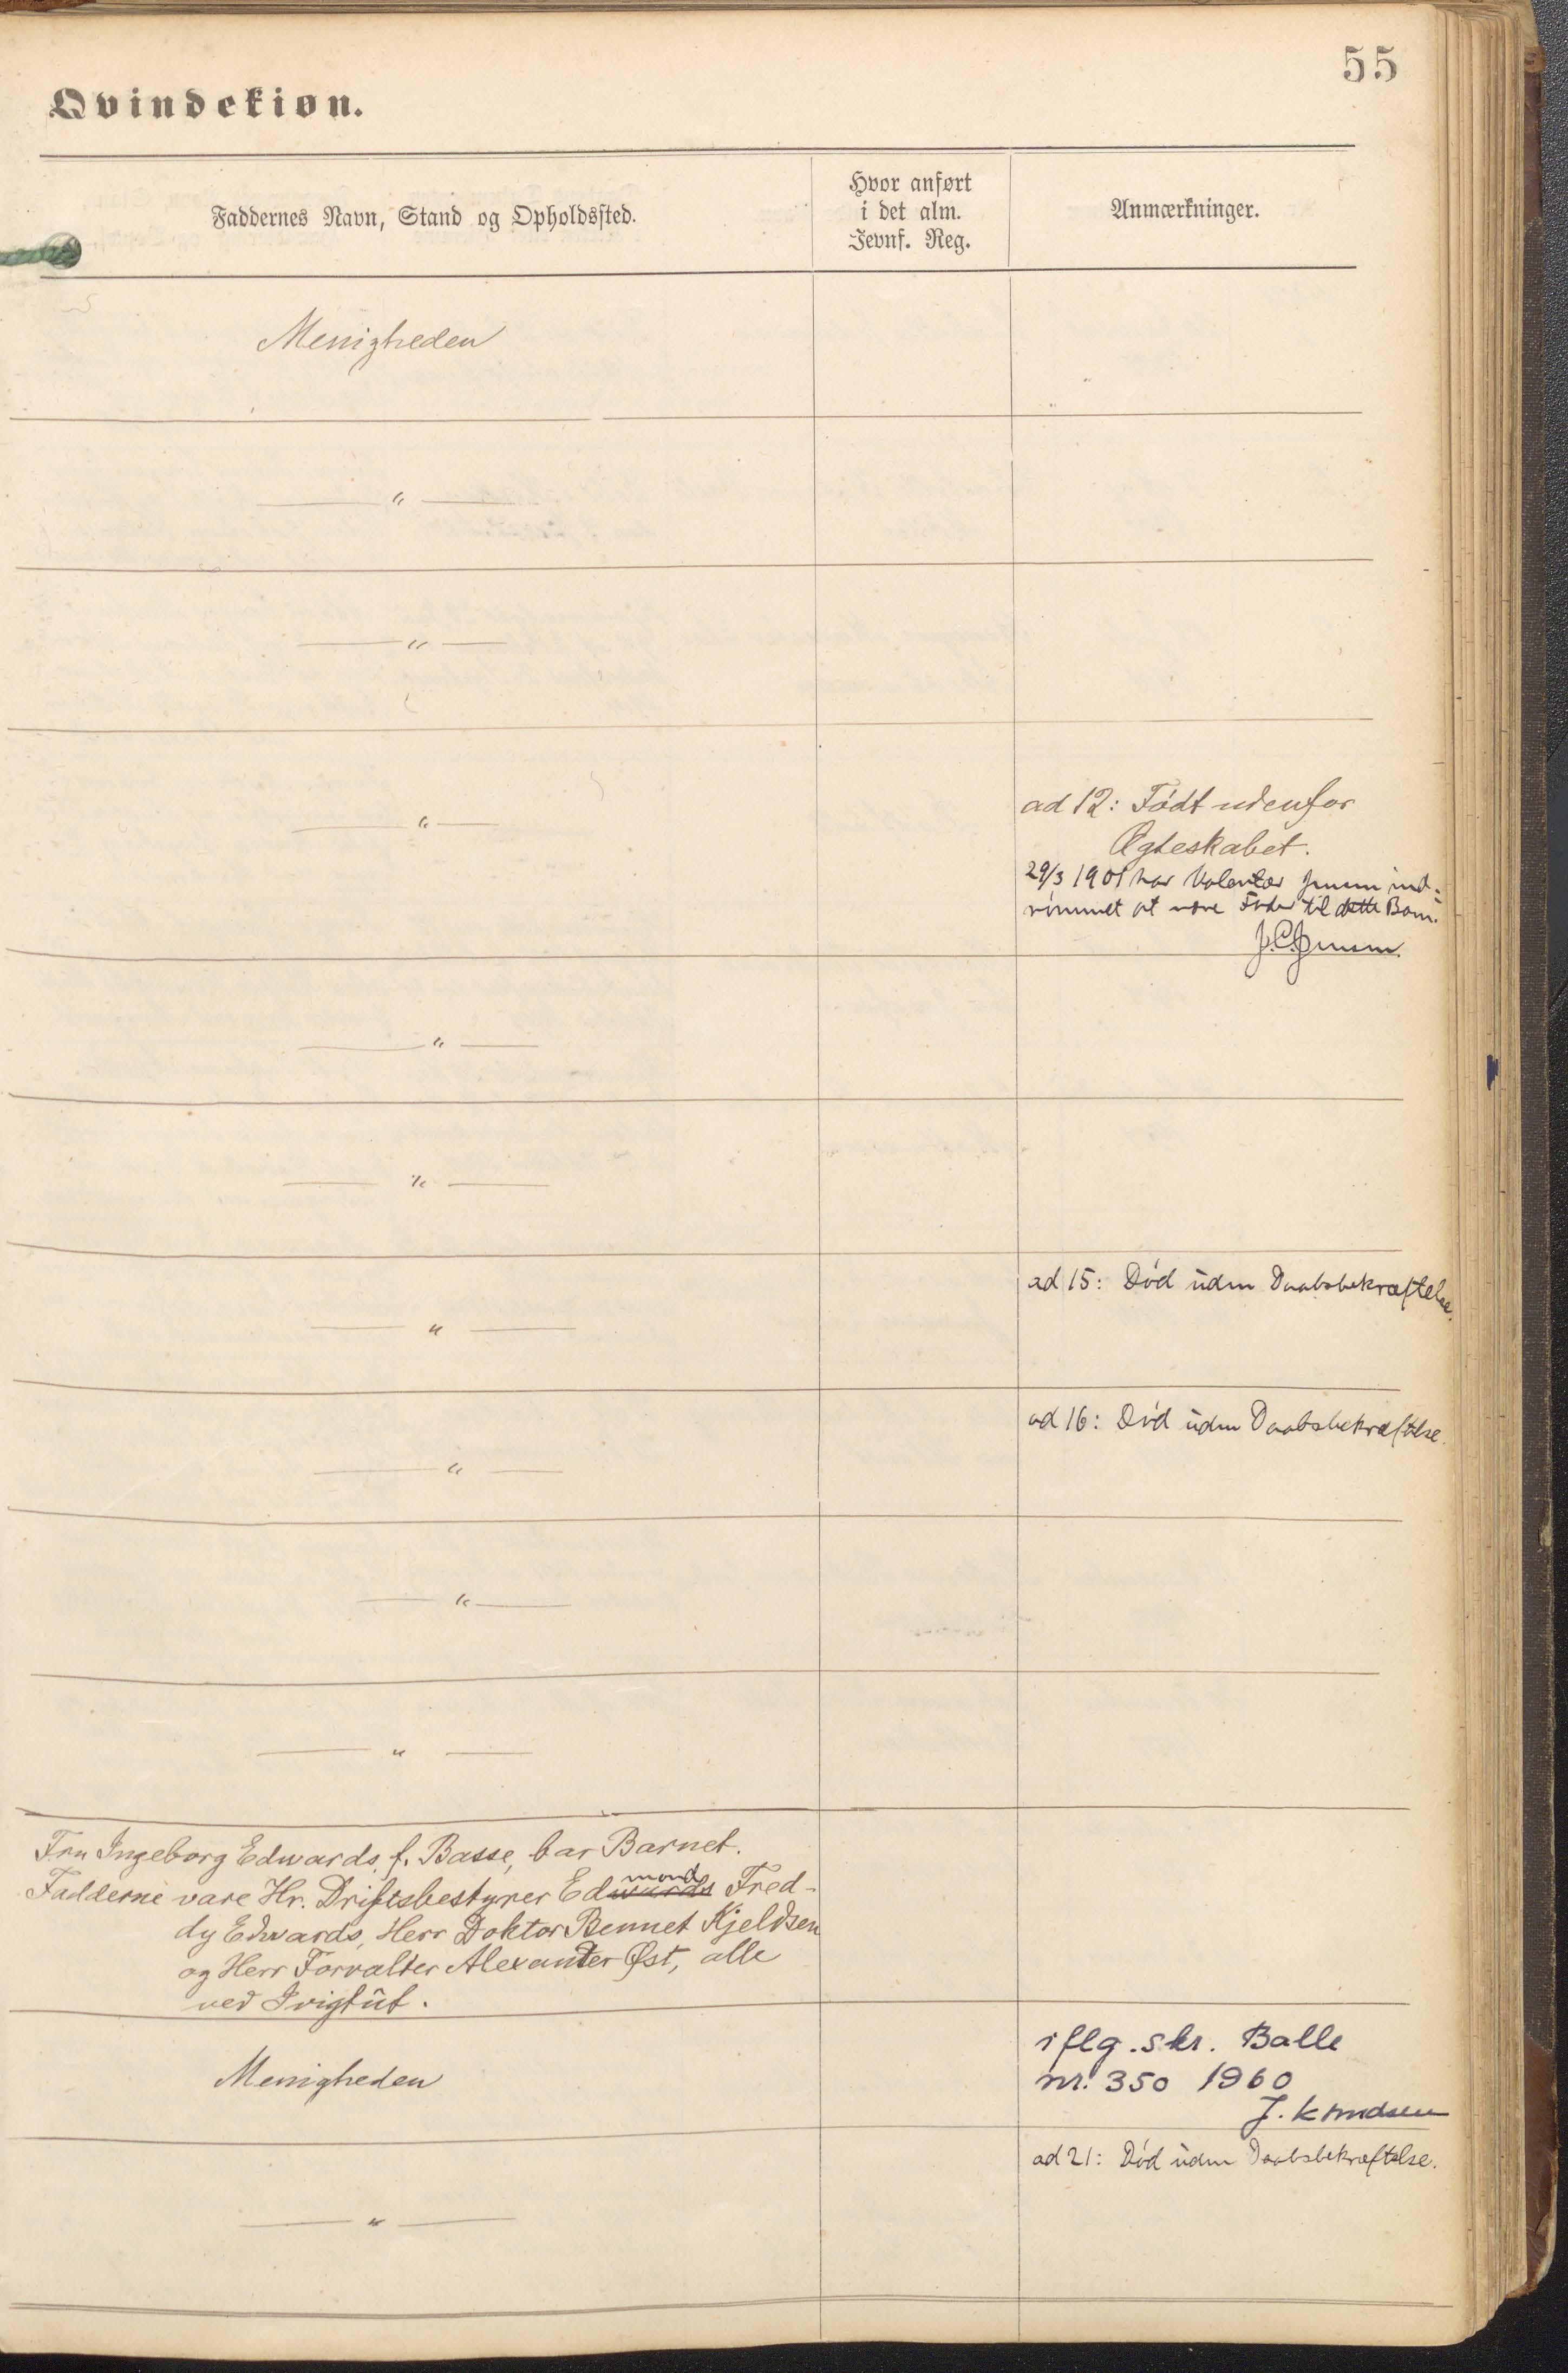 55
Qvindekiøn.
Faddernes Navn, Stand og Opholdssted.
Hvor anført
i det alm.
Jevnf. Reg.
Anmærkninger.
Menigheden
— " —
— " —
— " —
ad 12: Født udenfor
Ægteskabet.
29/3 1901 har Volentør Jensen ind-
rømmet at være Fader til dette Barn.
J.C. Jensen.
— " —
— " —
ad 15: Død uden Daabsbekræftelse.
— " —
ad 16: Død uden Daabsbekræftelse.
— " —
— " —
— " —
Fru Ingeborg Edwards, f. Basse, bar Barnet.
Fadderne vare Hr. Driftsbestyrer Edmond Fred-
dy Edwards, Herr Doktor Bennet Kjeldsen
og Herr Forvalter Alexander Øst, alle
ved Ivigtût.
Menigheden
iflg. skr. Balle
nr. 350 1960
J. Knudsen
ad 21: Død uden Daabsbekræftelse.
— " —